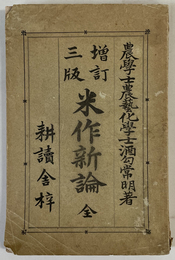 農學士農藝化學士酒匂常明著
増訂
三版
米作新論 全
耕讀舎梓